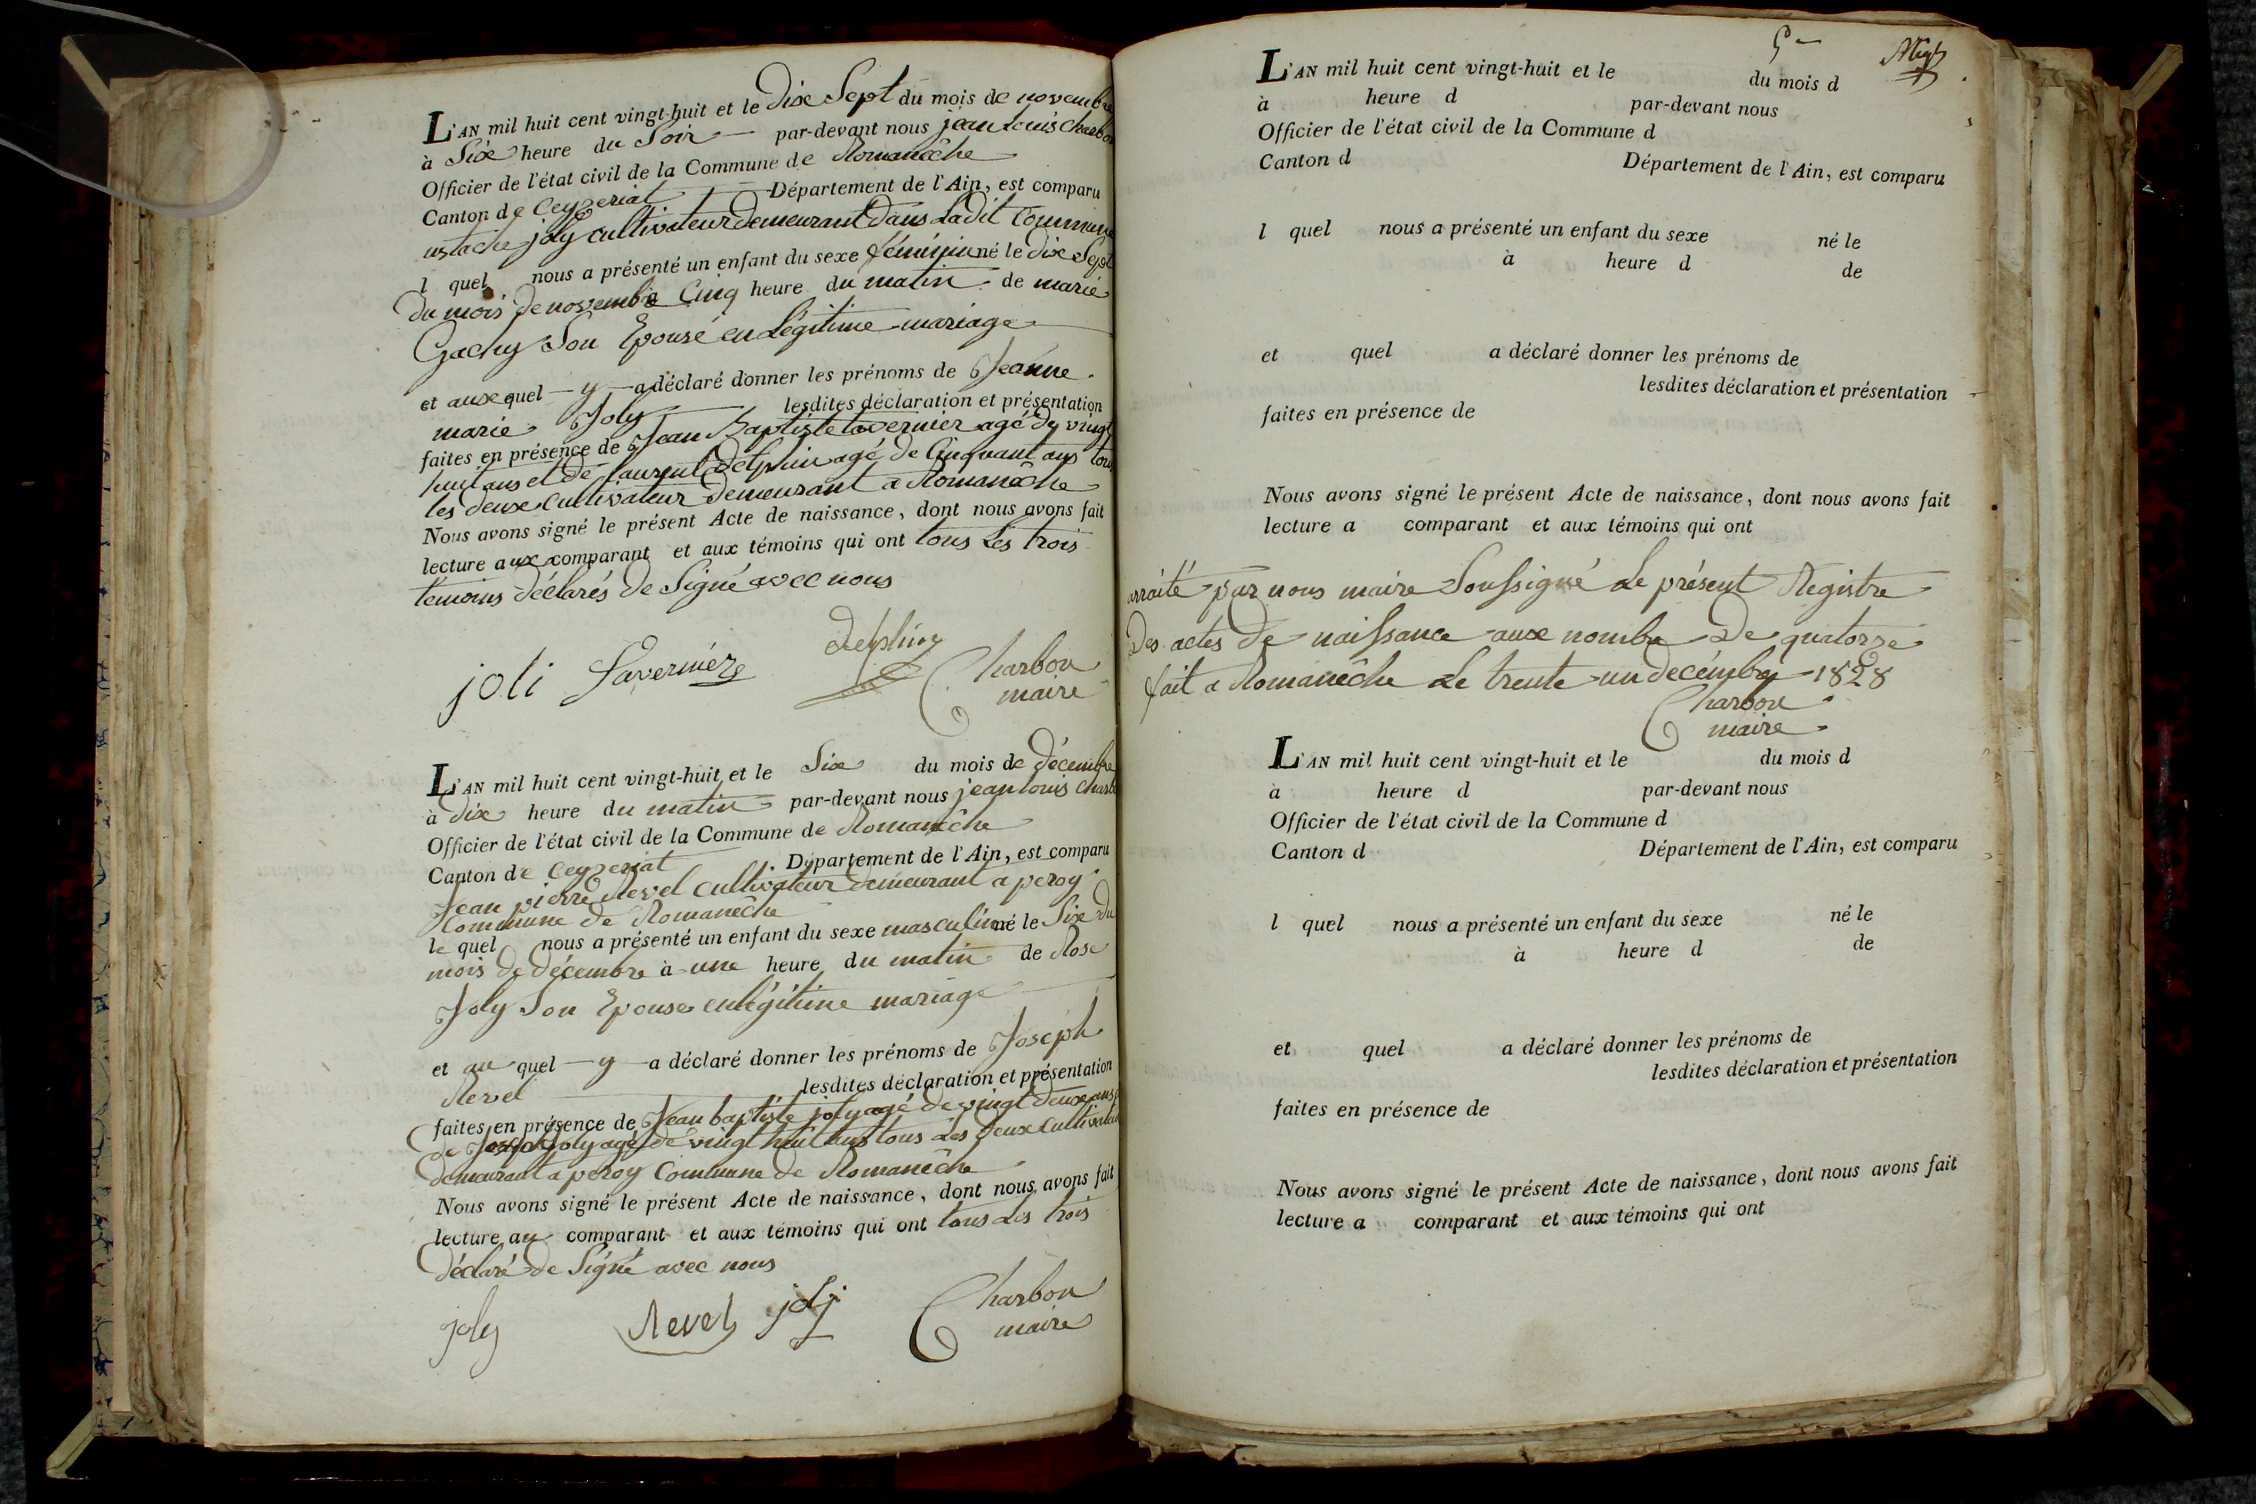 L'AN mil huit cent vingt-huit et le dix Sept du mois de novembre
à Six heure du Soir par-devant nous jean Louis Charbon
Officier de l'état civil de la Commune de Romanêche
Canton de Ceyzeriat Département de l'Ain, est comparu
ustache joly cultivateur demeurant dans Ladit Commune
l quel nous a présenté un enfant du sexe féminin né le dix Sept
du mois de novembre Cinq heure du matin de marie
Gachy Son Epouse en Légitime mariage
et aux quel y a déclaré donner les prénoms de Jeanne
marie Joly lesdites déclaration et présentation
faites en présence de Jean Baptiste tavernier agé dy vingt
huit ans et de Laurent Delphin agé de Cinquant ans tous
les deux cultivateur demeurant a Romanêche
Nous avons signé le présent Acte de naissance, dont nous avons fait
lecture aux comparant et aux témoins qui ont tous Les trois
temoins déclarés de Signé avec nous
joli Taverniér Delphin Charbon
maire
L'AN mil huit cent vingt-huit et le Six du mois de décembre
à dix heure du matin par-devant nous jean louis Charbon
Officier de l'état civil de la Commune de Romanêche
Canton de Ceyzeriat Département de l'Ain, est comparu
Jean pierre Revel cultivateur demeurant a peroy
Commune de Romanêche
le quel nous a présenté un enfant du sexe masculin né le Six du
mois de décembre à une heure du matin de Rose
Joly Son Epouse en légitime mariage
et au quel y a déclaré donner les prénoms de Joseph
Revel lesdites déclaration et présentation
faites en présence de Jean baptiste joly agé de vingt deux ans
de Joseph Joly agé de vingt huit ans tous Les deux Cultivateur
demeurant a peroy Commune de Romanêche
Nous avons signé le présent Acte de naissance, dont nous avons fait
lecture au comparant et aux témoins qui ont tous Les trois
déclaré de Signé avec nous
joly Revel joly Charbon
maire
L'AN mil huit cent vingt-huit et le du mois d
à heure d par-devant nous
Officier de l'état civil de la Commune d
Canton d Département de l'Ain, est comparu
l quel nous a présenté un enfant du sexe né le
à heure d de
et quel a déclaré donner les prénoms de
lesdites déclaration et présentation
faites en présence de
Nous avons signé le présent Acte de naissance, dont nous avons fait
lecture a comparant et aux témoins qui ont
arraité par nous maire Soussigné Le présent Registre
Des actes de naissance aux nombre De quatorze
fait a Romanêche Le trente un decémbre 1828
Charbon
maire
L'AN mil huit cent vingt-huit et le du mois d
à heure d par-devant nous
Officier de l'état civil de la Commune d
Canton d Département de l'Ain, est comparu
l quel nous a présenté un enfant du sexe né le
à heure d de
et quel a déclaré donner les prénoms de
lesdites déclaration et présentation
faites en présence de
Nous avons signé le présent Acte de naissance, dont nous avons fait
lecture a comparant et aux témoins qui ont